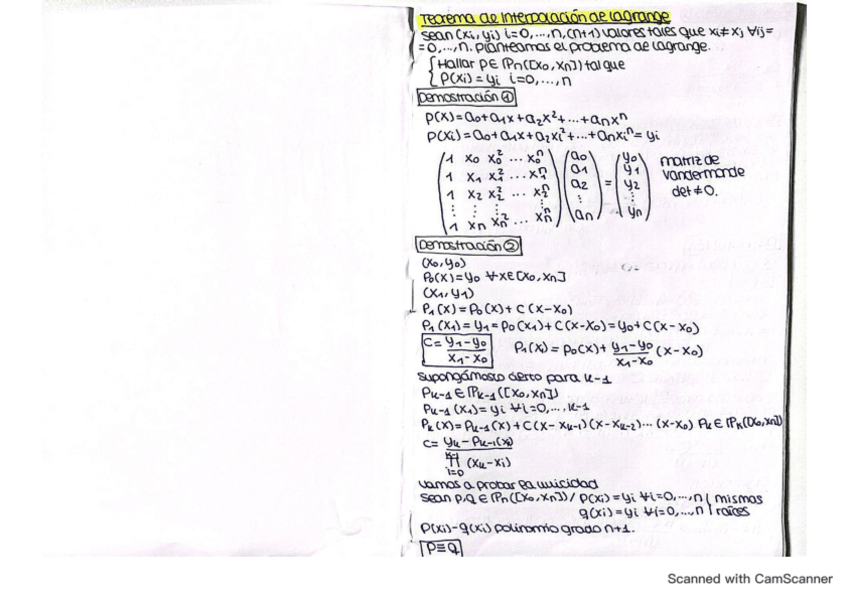 Teorema de interpolación de Lagrange
Sean (xi, yi) i=0,...,n, (n+1) valores tales que xi≠xj ∀ij=
=0,...,n. Planteamos el problema de Lagrange.
{ Hallar p∈ℙn([x0, xn]) tal que
p(xi)=yi i=0,...,n
Demostración ①
p(x)=a0+a1x+a2x²+...+anxⁿ
p(xi)=a0+a1x+a2xi²+...+anxiⁿ=yi
1 x0 x0² ... x0ⁿ a0 y0 matriz de
1 x1 x1² ... x1ⁿ a1 y1 vandermonde
1 x2 x2² ... x2ⁿ a2 = y2 det≠0.
⋮ ⋮ ⋮ ⋮ ⋮ ⋮
1 xn xn² ... xnⁿ an yn
Demostración ②
(x0, y0)
P0(x)=y0 ∀x∈[x0, xn]
(x1, y1)
P1(x)=P0(x)+C(x-x0)
P1(x1)=y1=P0(x1)+C(x-x0)=y0+C(x-x0)
C=(y1-y0)/(x1-x0) P1(x)=P0(x)+(y1-y0)/(x1-x0) (x-x0)
Supongámoslo cierto para k-1
Pk-1∈ℙk-1([x0, xn])
Pk-1(xi)=yi ∀i=0,...,k-1
Pk(x)=Pk-1(x)+C(x-xk-1)(x-xk-2)...(x-x0) Pk∈ℙk([x0, xn])
C=yk-Pk-1(xk)
k-1
∏ (xk-xi)
i=0
Vamos a probar la unicidad
Sean p,q∈ℙn([x0, xn]) / p(xi)=yi ∀i=0,...,n } mismas
q(xi)=yi ∀i=0,...,n } raíces
p(xi)-q(xi) polinomio grado n+1.
p≡q
Scanned with CamScanner